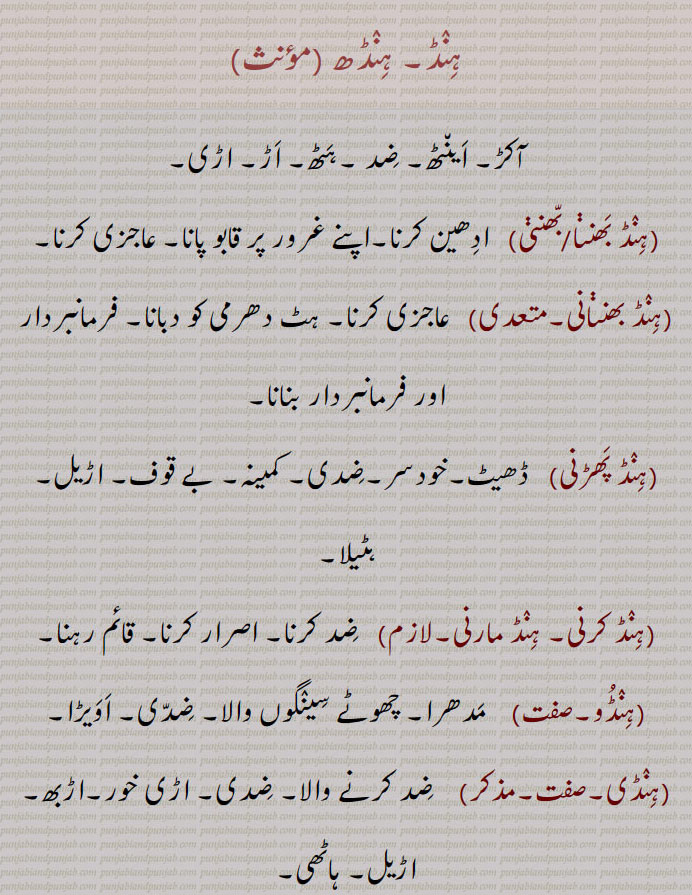 ہِنْڈ۔ ہِنْڈھ (مؤنث)
آکڑ۔ اَینّٹھ۔ ضِد ۔ ہَٹھ۔ اَڑ۔ اڑی۔
(ہِنْڈ بَھننا/بَھّننی) ادِھین کرنا۔اپنے غرور پر قابو پانا۔ عاجزی کرنا۔
(ہِنْڈ بھننانی۔متعدی) عاجزی کرنا۔ ہٹ دھرمی کو دبانا۔ فرمانبردار
اور فرمانبردار بنانا۔
(ہِنْڈ پَھڑنی) ڈھیٹ۔خودسر۔ضِدی۔ کمینہ۔ بے قوف۔ اڑیل۔
ہٹیلا۔
(ہِنْڈ کرنی۔ ہِنْڈ مارنی۔لازم) ضِد کرنا۔ اصرار کرنا۔ قائم رہنا۔
(ہِنْڈُو۔صفت) مَدھرا۔ چھوٹے سِینْگوں والا۔ ضِدّی۔ اَوَیڑا۔
(ہِنْڈی۔صفت۔مذکر) ضِد کرنے والا۔ ضِدی۔ اڑی خور۔اڑبھ۔
اڑیل۔ ہاٹھی۔